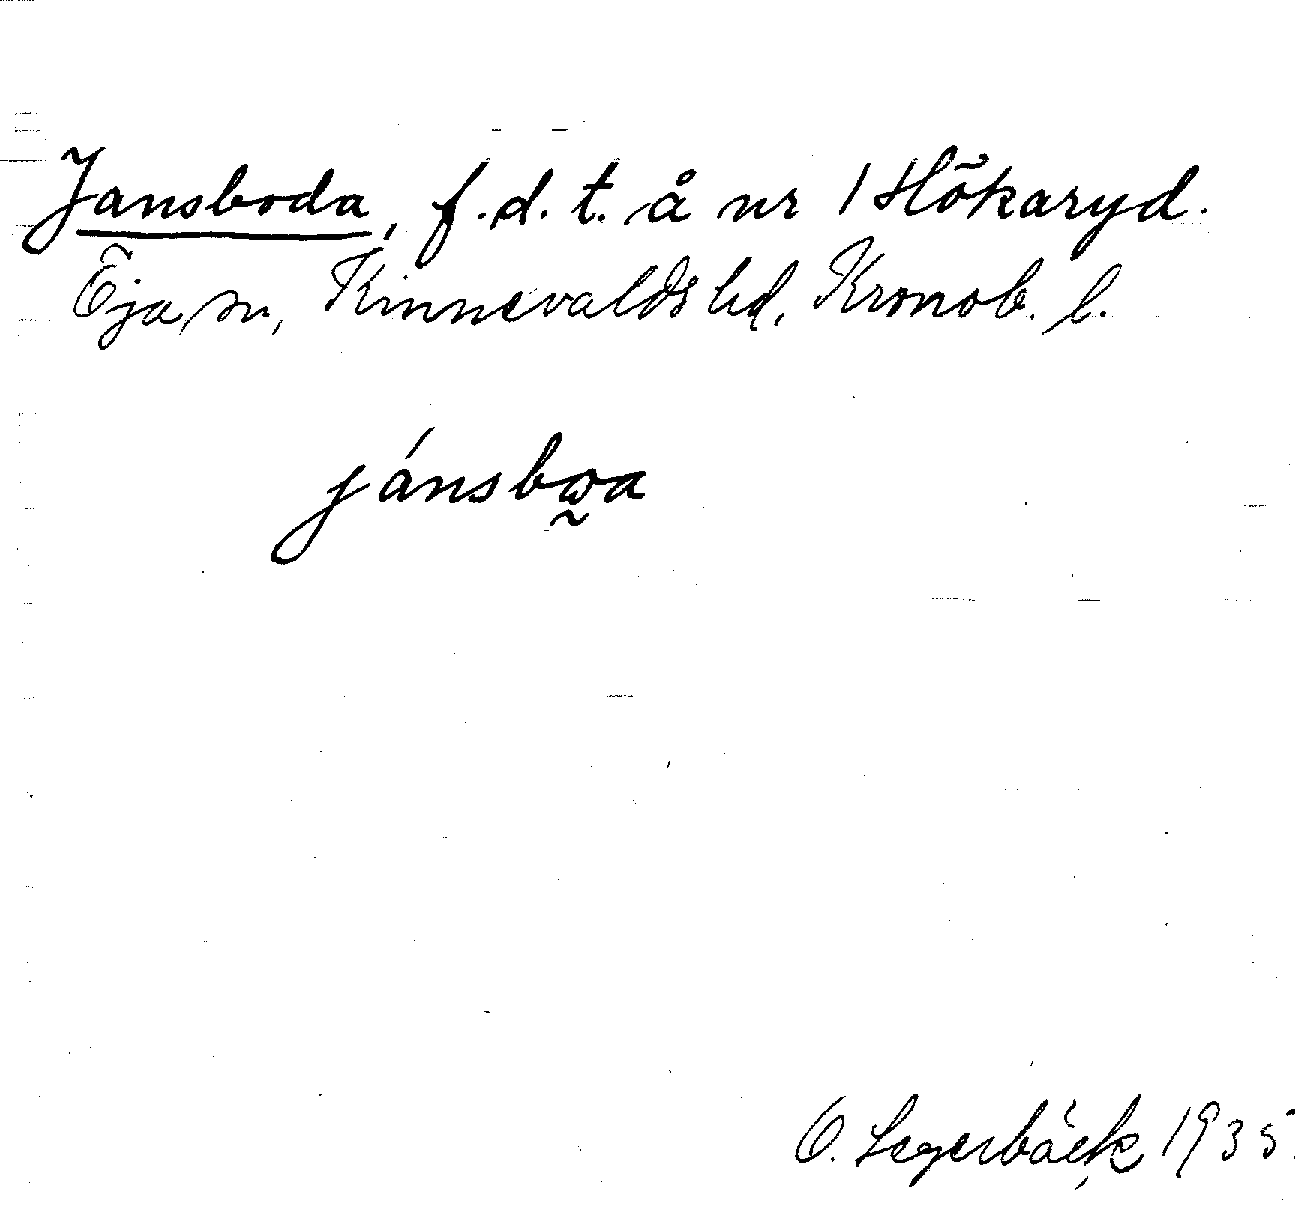 Jansboda, f.d. t. å nr 1 Hökaryd.
Öja sn, Kinnevalds hd, Kronob. l.
jánsbωa
O. Segerbäck 1935.